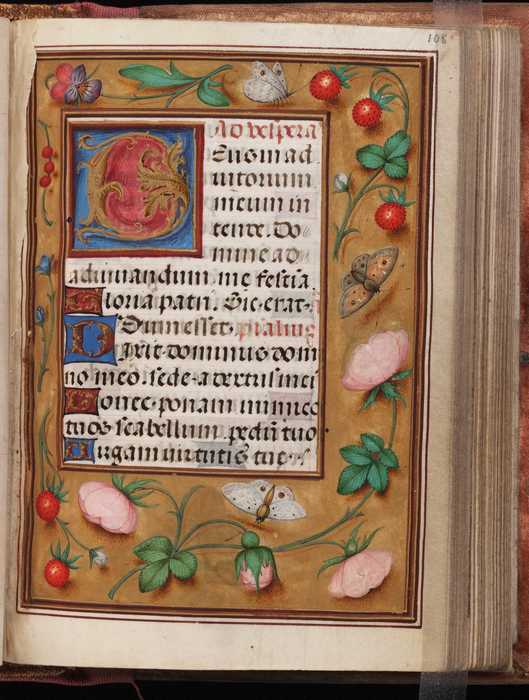 108
Ad vespera
Deus in ad
iutorium
meum in
tende. Do
mine ad
adiuuandum me festia
Gloria patri. Sic erat.
Dum esset. psalmus
Dixit dominus dom
no meo: sede a dextris mei
Donec ponam inimico
tuos scabellum pedu tuo
Uirgam uirtutis tue